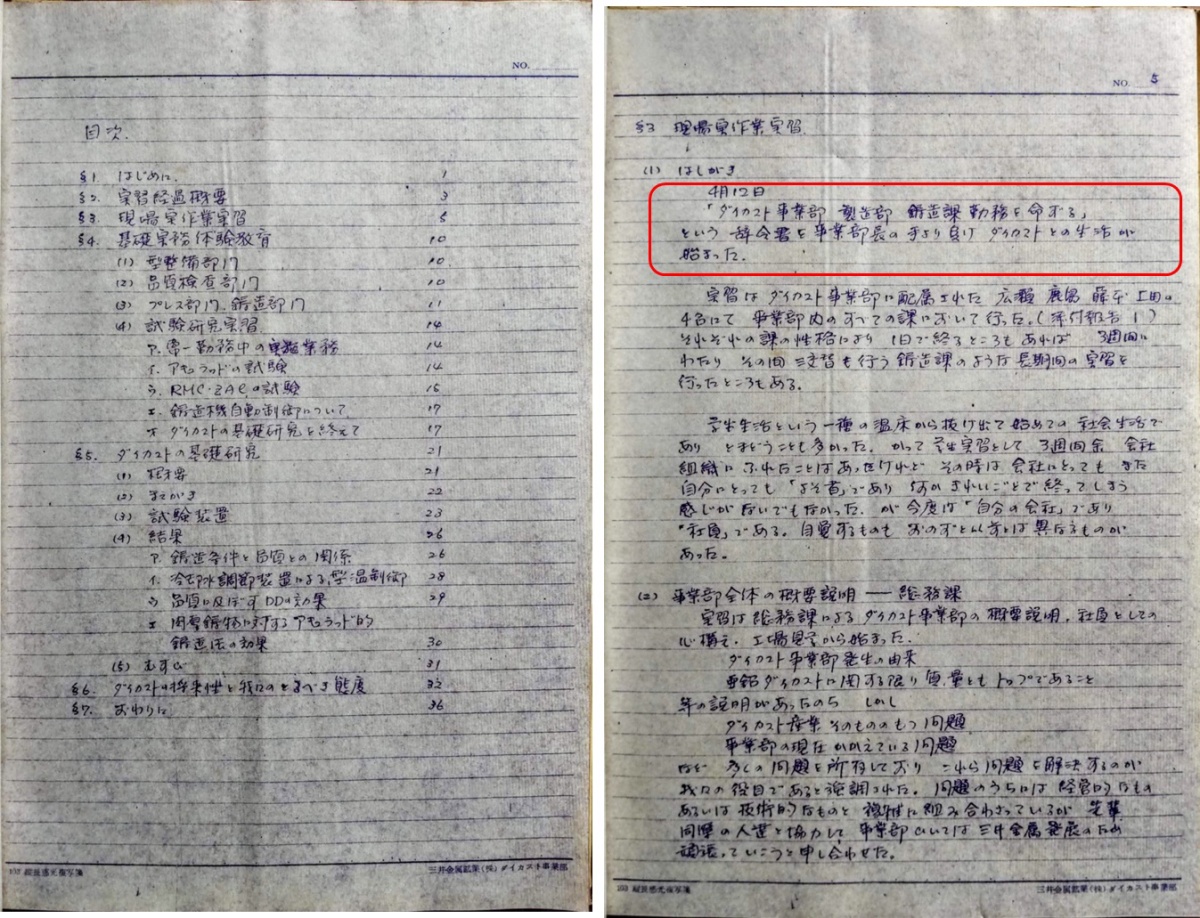 NO.
目次.
§1. はじめに. 1
§2. 実習経過概要 3
§3. 現場実作業実習 5
§4. 基礎実務体験教育 10
(1) 型整備部門 10
(2) 品質検査部門 10
(3) プレス部門、鋳造部門 11
(4) 試験研究実習 14
ア. 専一勤務中の実験業務 14
イ. アキュラッドの試験 14
ウ. RMC・ZACの試験 15
エ. 鋳造機自動制御について 17
オ. ダイカストの基礎研究を終えて 17
§5. ダイカストの基礎研究 21
(1) 概要 21
(2) まえがき 22
(3) 試験装置 23
(4) 結果 26
ア. 鋳造条件と品質との関係 26
イ. 冷却水調節装置による型温制御 28
ウ. 品質に及ぼすDDの効果 29
エ. 肉厚鋳物に対するアキュラッド的
鋳造法の効果 30
(5) むすび 31
§6. ダイカストの将来性と我々のとるべき態度 32
§7. おわりに 36
三井金属鉱業(株)ダイカスト事業部
NO. 5
§3 現場実作業実習
(1) はしがき
4月12日
「ダイカスト事業部 製造部 鋳造課 勤務を命ずる」
という 辞令書を事業部長の手より負け ダイカストとの生活が
始まった.
実習はダイカスト事業部に配属された 広瀬 鹿島 上田の
4名にて 事業部内のすべての課において行った.(添付報告1)
それぞれの課の性格により 1日で終るところもあれば 3週間に
わたり その間 三交替も行う 鋳造課のような長期間の実習を
行ったところもある.
学生生活という一種の温床から抜け出て始めての社会生活で
あり とまどうことも多かった. かつて学生実習として 3週間余 会社
組織にふれたことはあったけれど その時は会社にとっても また
自分にとっても「よそ者」であり なにか きれいごとで終ってしまう
感じがないでもなかった. が 今度は「自分の会社」であり
"社員"である. 自覚するものも おのずと以前とは異なるものが
あった.
(2) 事業部全体の概要説明 ― 総務課
実習は総務課による ダイカスト事業部の概要説明. 社員としての
心構え. 工場見学から始まった.
ダイカスト事業部発生の由来
亜鉛ダイカストに関する限り 質、量ともトップであること
等の説明があったのち しかし
ダイカスト産業 そのもののもつ問題
事業部の現在かかえている問題
など 多くの問題を所有しており これら問題を解決するのが
我々の役目であると強調された. 問題のうちには 経営的なもの
あるいは技術的なものと 複雑に組み合わさっているが 先輩
同僚の人達と協力して 事業部ひいては三井金属発展のため
頑張っていこうと申し合わせた.
三井金属鉱業(株)ダイカスト事業部